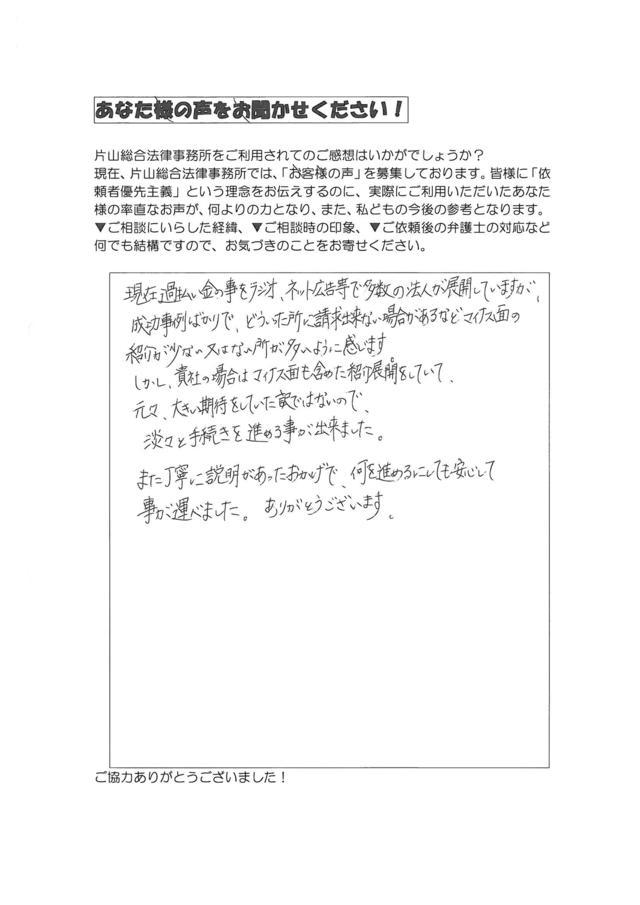 あなた様の声をお聞かせください！
片山総合法律事務所をご利用されてのご感想はいかがでしょうか？
現在、片山総合法律事務所では、「お客様の声」を募集しております。皆様に「依
頼者優先主義」という理念をお伝えするのに、実際にご利用いただいたあなた
様の率直なお声が、何よりの力となり、また、私どもの今後の参考となります。
▼ご相談にいらした経緯、▼ご相談時の印象、▼ご依頼後の弁護士の対応など
何でも結構ですので、お気づきのことをお寄せください。
現在過払い金の事をラジオ、ネット広告等で多数の法人が展開していますが、
成功事例ばかりで、どういった所に請求出来ない場合があるなどマイナス面の
紹介が少ない又はない所が多いように感じます
しかし、貴社の場合はマイナス面も含めた紹介展開をしていて、
元々、大きい期待をしていた訳ではないので、
淡々と手続きを進める事が出来ました。
また丁寧に説明があったおかげで、何を進めるにしても安心して
事が運べました。ありがとうございます。
ご協力ありがとうございました！